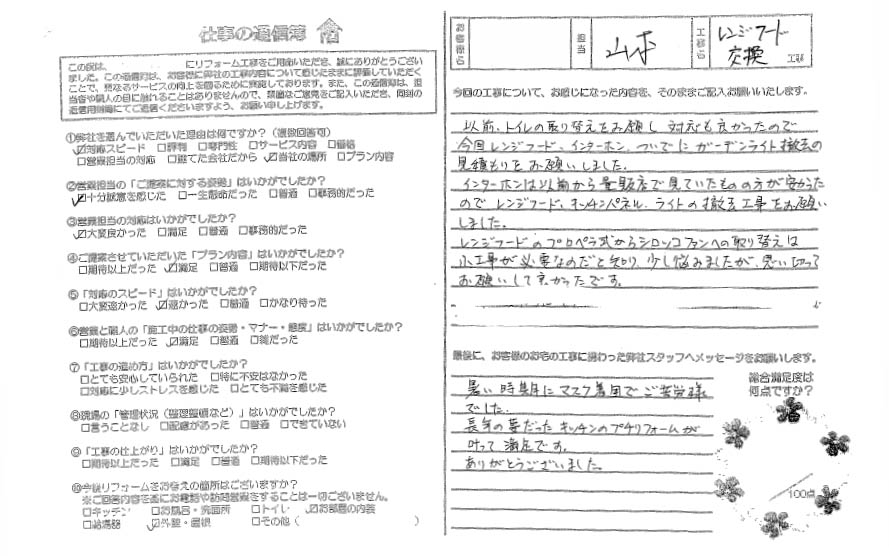 仕事の通信簿
この度は、　　　　にリフォーム工事をご用命いただき、誠にありがとうござい
ました。この通信簿は、お客様に弊社の工事内容について感じたままに評価していただく
ことで、更なるサービスの向上を図るために実施しております。また、この通信簿は、担
当者や職人の目に触れることはありませんので、禁憚なご意見をご記入いただき、同封の
返信用封筒にてご返信くださいますよう、お願い申し上げます。
①弊社を選んでいただいた理由は何ですか？（複数回答可）
☑対応スピード □評判 □専門性 □サービス内容 □価格
□営業担当の対応 □建てた会社だから ☑当社の場所 □プラン内容
②営業担当の「ご提案に対する姿勢」はいかがでしたか？
☑十分誠意を感じた □一生懸命だった □普通 □事務的だった
③営業担当の対応はいかがでしたか？
☑大変良かった □満足 □普通 □事務的だった
④ご提案させていただいた「プラン内容」はいかがでしたか？
□期待以上だった ☑満足 □普通 □期待以下だった
⑤「対応のスピード」はいかがでしたか？
□大変速かった ☑速かった □普通 □かなり待った
⑥営業と職人の「施工中の仕事の姿勢・マナー・態度」はいかがでしたか？
□期待以上だった ☑満足 □普通 □雑だった
⑦「工事の進め方」はいかがでしたか？
□とても安心していられた □特に不安はなかった
□対応に少しストレスを感じた □とても不満を感じた
⑧現場の「管理状況（整理整頓など）」はいかがでしたか？
□言うことなし □配慮があった □普通 □できていない
⑨「工事の仕上がり」はいかがでしたか？
□期待以上だった □満足 □普通 □期待以下だった
⑩今後リフォームをお考えの箇所はございますか？
※ご回答内容を基にお電話や訪問営業をすることは一切ございません。
□キッチン □お風呂・洗面所 □トイレ ☑お部屋の内装
□給湯器 ☑外壁・屋根 □その他（　　　）
お客様名
担当
工事名
レンジフード
交換 工事
今回の工事について、お感じになった内容を、そのままご記入お願いいたします。
以前、トイレの取り替えをお願いし 対応も良かったので
今回 レンジフード、インターホン、ついでに ガーデンライト撤去の
見積もりをお願いしました。
インターホンは以前から量販店で見ていたものの方が安かった
ので レンジフード、キッチンパネル、ライトの撤去工事をお願い
しました。
レンジフードのプロペラ式からシロッコファンへの取り替えは
小工事が必要なのだと知り、少し悩みましたが、思い切って
お願いして良かったです。
最後に、お客様のお宅の工事に携わった弊社スタッフへメッセージをお願いします。
暑い時期にマスク着用でご苦労様
でした。
長年の夢だったキッチンのプチリフォームが
叶って満足です。
ありがとうございました。
総合満足度は
何点ですか？
／100点